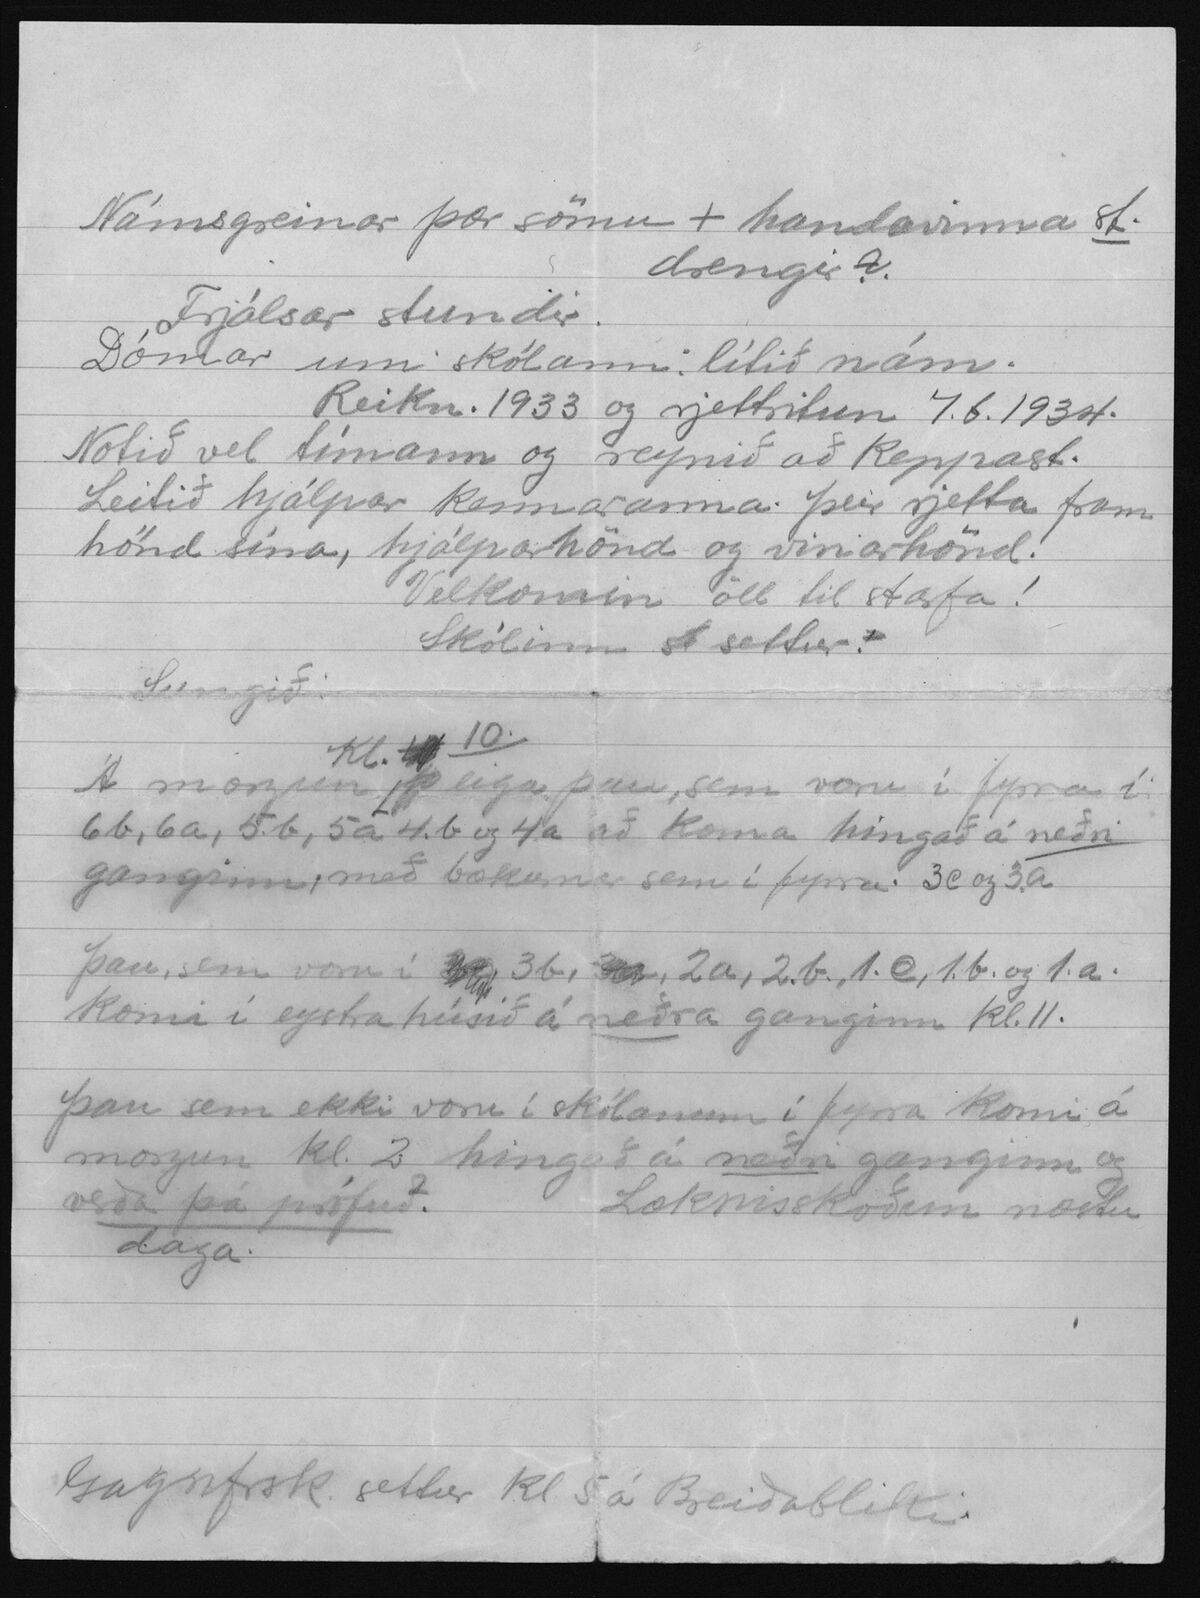 Námsgreinar þær sömu + handavinna st.
drengir?.
Frjálsar stundir.
Dómar um skólann: lítið nám.
Reikn. 1933 og rjettritun 7.b. 1934.
Notið vel tímann og reynið að keppast.
Leitið hjálpar kennaranna. þeir rjetta fram
hönd sína, hjálparhönd og vinarhönd.
Velkomin öll til starfa!
Skólinn settur.
Sungið:
Kl. 10.
Á morgun eiga þau, sem voru í fyrra í:
6b, 6a, 5.b, 5a 4.b og 4a að koma hingað á neðri
ganginn, með bækurnar sem í fyrra. 3c og 3.a
þau, sem voru í 3b, 2a, 2.b., 1.c, 1.b. og 1.a.
komi í eystra húsið á neðra ganginn kl. 11.
þau sem ekki voru í skólanum í fyrra komi á
morgun kl. 2 hingað á neðri ganginn og
verða þá prófuð. Læknisskoðun næstu
daga.
Gagnfrsk. settur kl 5 á Breiðabliki.